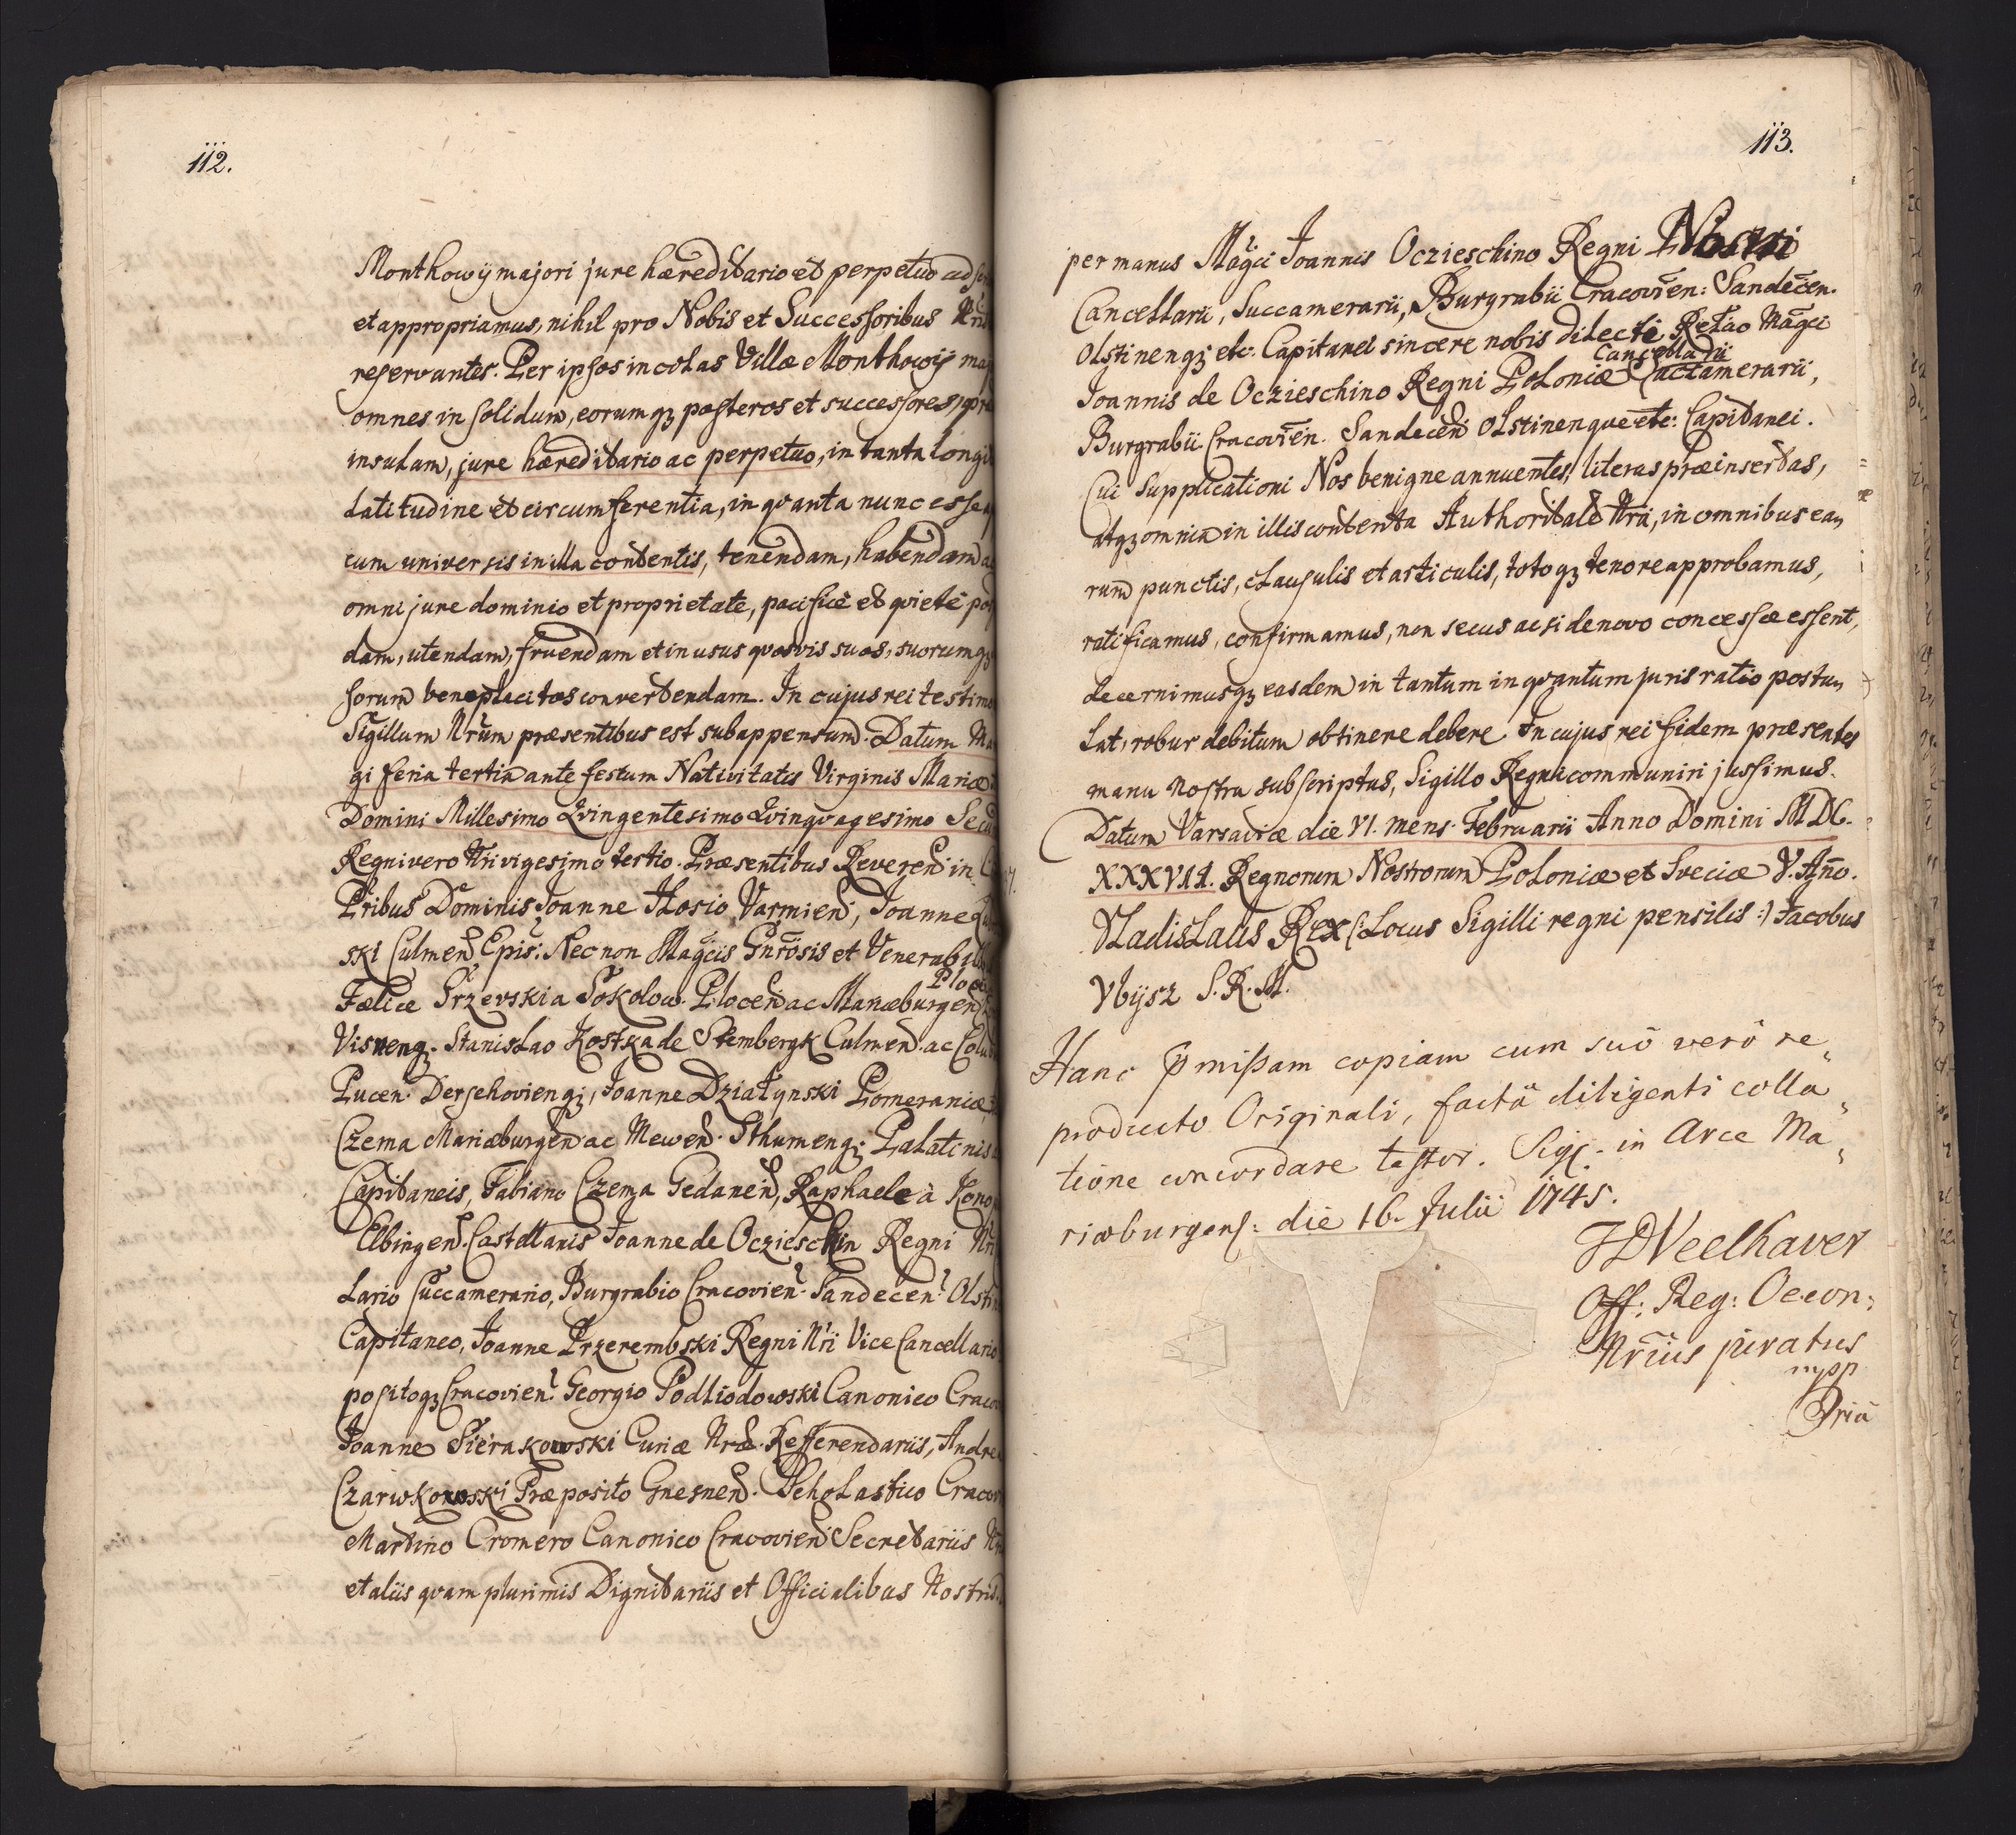 112.
Monthowÿ majori jure hæreditario et perpetuo
et appropriamus, nihil pro Nobis et Successoribus
reservantes. Per ipsos incolas Villæ Monthowÿ
omnes in solidum, eorumqz posteros et successores,
insulam, jure hæreditario ac perpetuo, in tanta
latitudine et circumferentia, in qvanta nunc
cum universis in illa contentis, tenendam, habendam
omni jure dominio et proprietate, pacifice et qviete
dam, utendam, fruendam et in usus qvosvis suos, suorumqz
sorum beneplacitos convertendam. In cujus rei
Sigillum Nr̃um præsentibus est subappensum. Datum
gi feria tertia ante festum Nativitatis Virginis Mariæ
Domini Millesimo Qvingentesimo Qvinqvagesimo
Regni vero Nri vigesimo tertio. Præsentibus Reverend in
Pribus Dominis Joanne Hosio Varmien, Joanne
ski Culmen Epis: Nec non Magcis Gnrosis et
Fælice Srzevski a Sokolow. Plocen ac Mariæburgen
Visneng. Stanislao Kostka de Stembergk Culmen. ac
Pucen. Derschoviengz, Joanne Dziatynski Pomeraniæ,
Czema Mariæburgen ac Mewen. Sthumengz Palatinis
Capitaneis, Fabiano Czema Gedanen, Raphaele à
Elbingen. Castellanis Joanne de Oczieschin Regni
lario Succamerario, Burgrabio Cracovien. Sandecen.
Capitaneo, Joanne Przerembski Regni Nri Vice Cancellario
positoqz Cracovien. Georgio Podliodowski Canonico
Joanne Sierakowski Curiæ Nræ. Refferendariis,
Czarwkowski Præposito Gnesnen. Scholastico
Martino Cromero Canonico Cracovien Secretariis
et aliis qvam plurimis Dignitariis et Officialibus Nostris.
113.
per manus Magci Joannis Oczieschino Regni Nostri
Cancellarii, Succamerarii, Burgrabii Cracovien: Sandecen.
Olstinengz etc. Capitanei sincere nobis dilecti Relao Magci
Cancellarii
Joannis de Oczieschino Regni Poloniæ Cactamerarii,
Burgrabii Cracovien. Sandecen Olstinenque etc: Capitanei.
Cui Supplicationi Nos benigne annuentes, literas præinsertas,
atqz omnia in illis contenta Authoritate Nra, in omnibus ea„
rum punctis, clausulis et articulis, totoqz tenore approbamus,
ratificamus, confirmamus, non secus ac si denovo concessæ essent,
decernimusqz easdem in tantum in qvantum juris ratio postu„
lat, robur debitum obtinere debere. In cujus rei fidem præsentes
manu Nostra subscriptas, Sigillo Regni communiri jussimus.
Datum Varsaviæ die VI. mens. Februarii Anno Domini MDC.
XXXVII. Regnorum Nostrorum Poloniæ et Sveciæ V. Año.
Vladislaus Rex (: Locus Sigilli regni pensilis :) Jacobus
Vbÿsz S. R. M.
Hanc p̃mißam copiam cum suô verô re„
producto Originali, factâ diligenti colla„
tione concordare testor. Sigt. in Arce Ma„
riæburgens: die 16. Julii 1745.
JDVeelhaver
Off: Reg: Oecon:
Nrius juratus
mpp